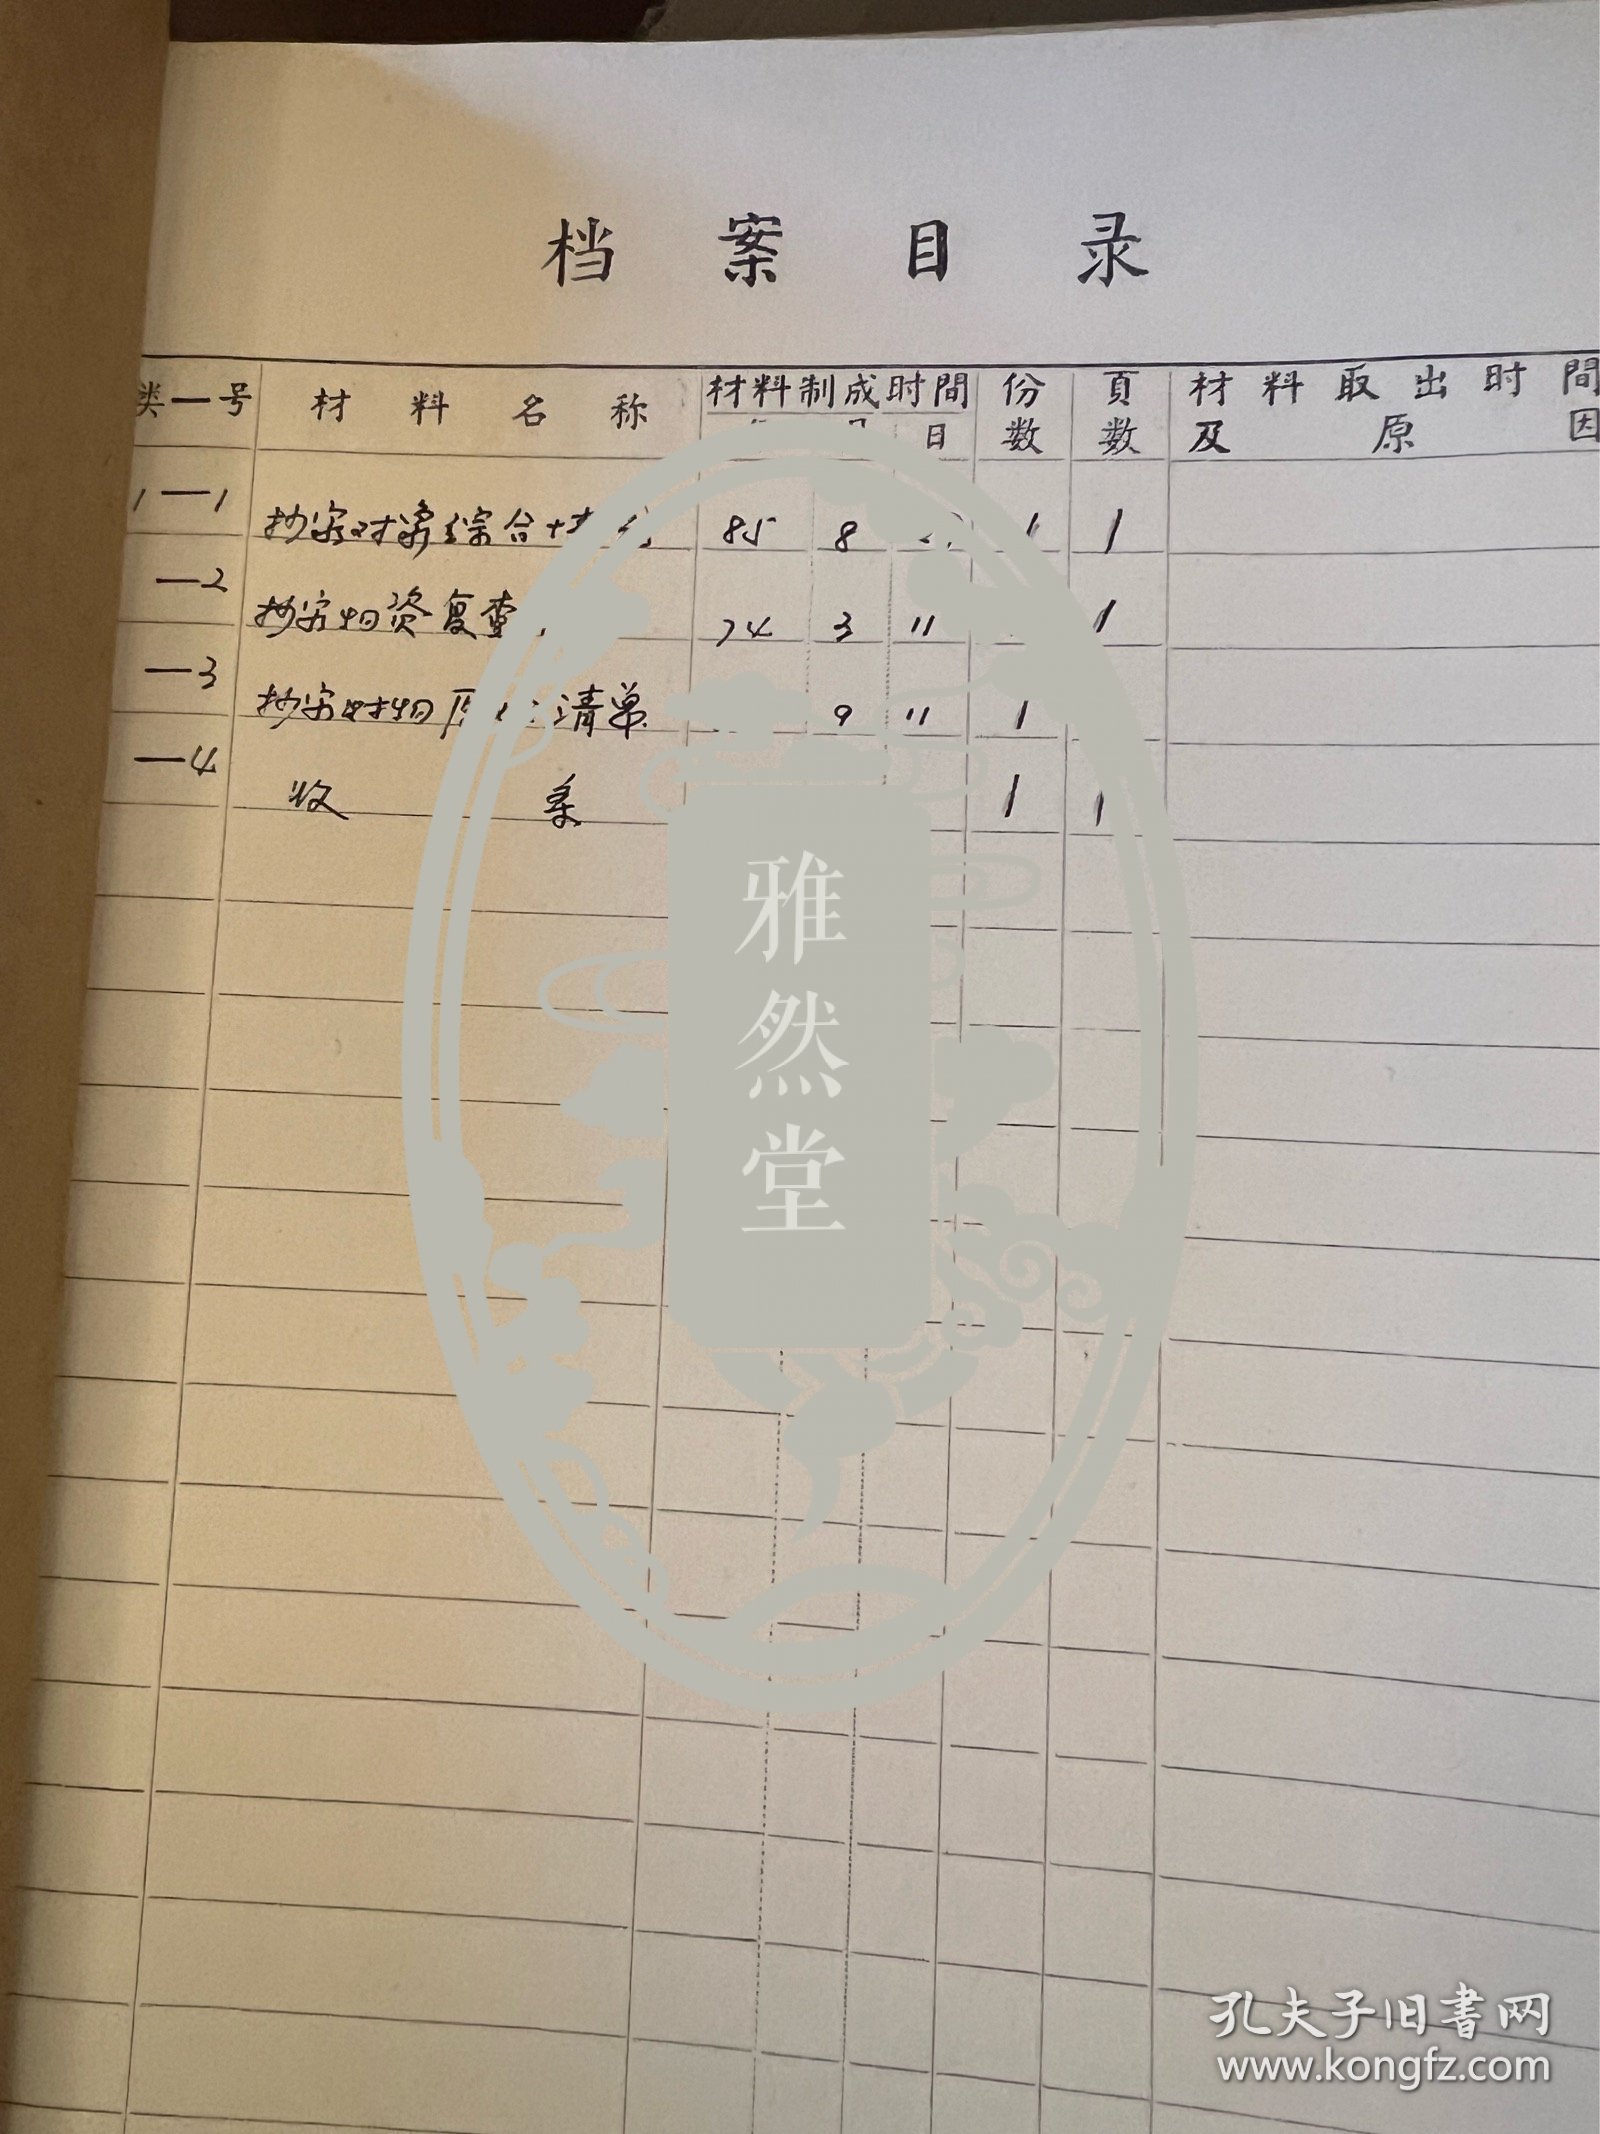 档案目录
类一号 材料名称 材料制成时間 份数 頁数 材料取出时間及原因
日
1—1 抄家对象综合 85 8 1 1
—2 抄家物资复查 74 3 11 1
—3 抄家财物 清单 9 11 1
—4 收条 1 1
雅然堂
孔夫子旧書网
www.kongfz.com